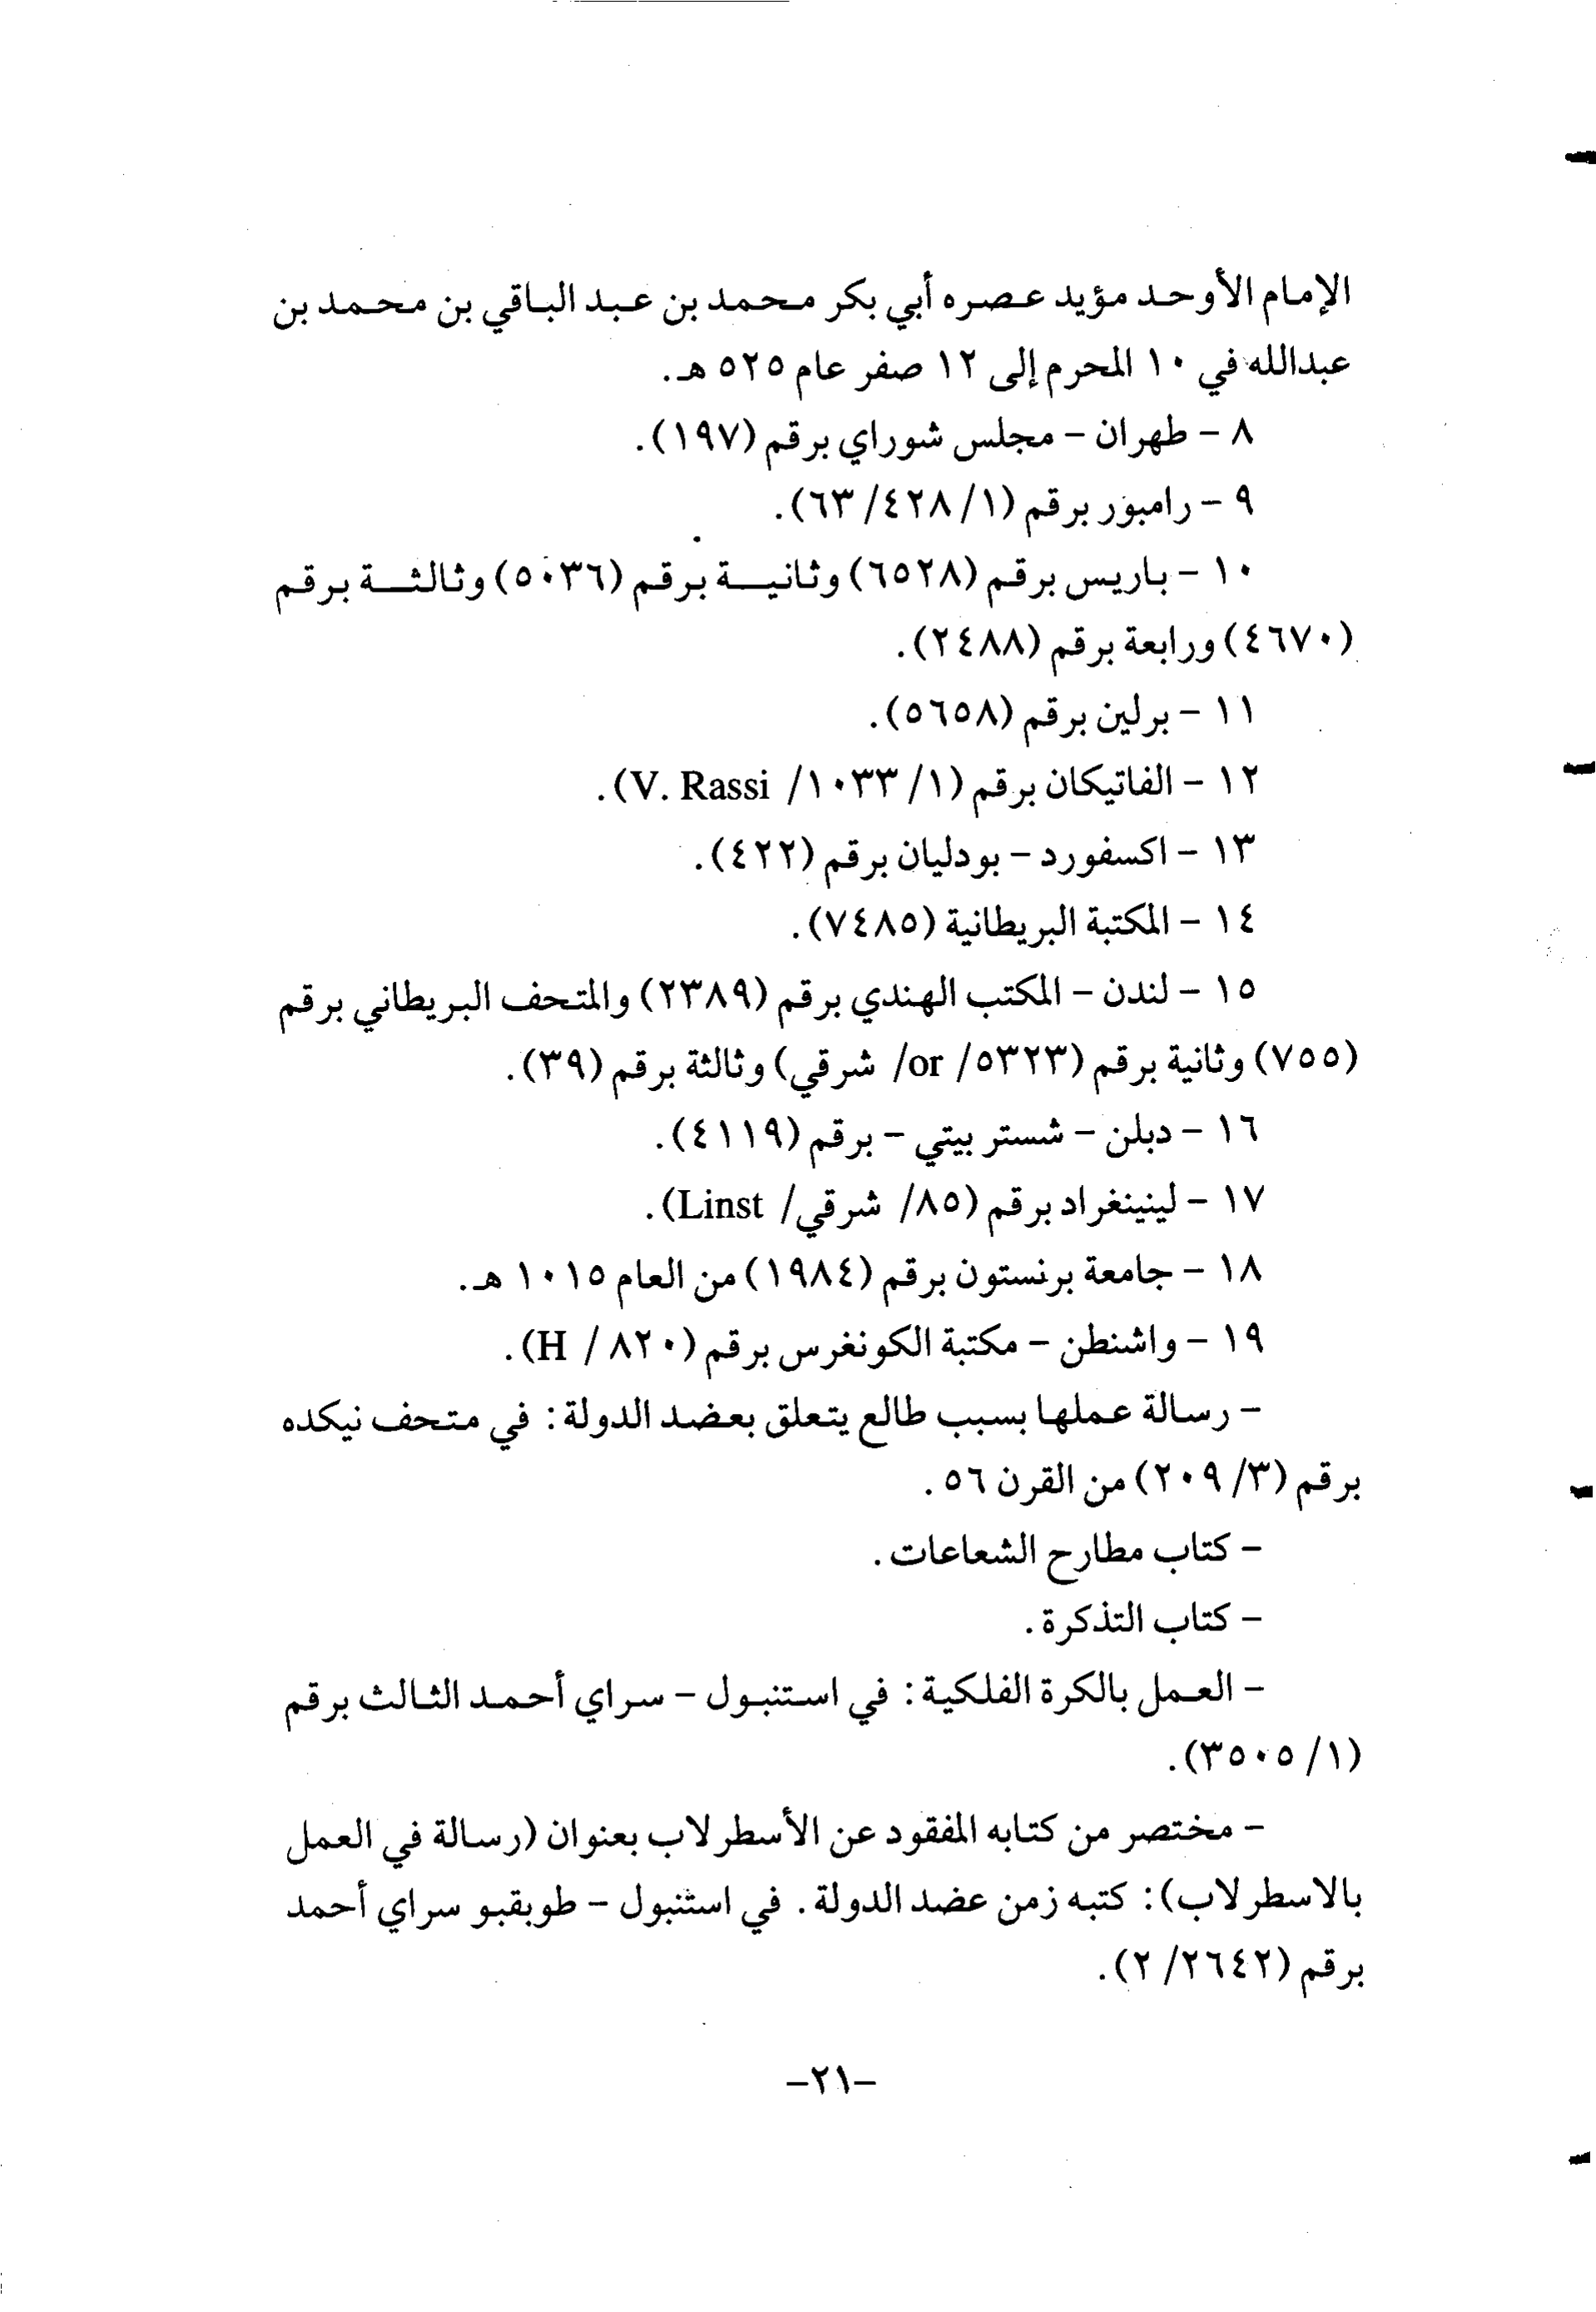 الإمام الأوحد مؤيد عصره أبي بكر محمد بن عبد الباقي بن محمد بن
عبدالله في ١٠ المحرم إلى ١٢ صفر عام ٥٢٥ هـ.
٨ - طهران - مجلس شوراي برقم (١٩٧).
٩ - رامبور برقم (١/ ٤٢٨/ ٦٣).
١٠ - باريس برقم (٦٥٢٨) وثانية برقم (٥٠٣٦) وثالثة برقم
(٤٦٧٠) ورابعة برقم (٢٤٨٨).
١١ - برلين برقم (٥٦٥٨).
١٢ - الفاتيكان برقم (١/ ١٠٣٣/ V. Rassi).
١٣ - اكسفورد - بودليان برقم (٤٢٢).
١٤ - المكتبة البريطانية (٧٤٨٥).
١٥ - لندن - المكتب الهندي برقم (٢٣٨٩) والمتحف البريطاني برقم
(٧٥٥) وثانية برقم (٥٣٢٣/ or/ شرقي) وثالثة برقم (٣٩).
١٦ - دبلن - شستر بيتي - برقم (٤١١٩).
١٧ - لينينغراد برقم (٨٥/ شرقي/ Linst).
١٨ - جامعة برنستون برقم (١٩٨٤) من العام ١٠١٥ هـ.
١٩ - واشنطن - مكتبة الكونغرس برقم (٨٢٠ / H).
- رسالة عملها بسبب طالع يتعلق بعضد الدولة: في متحف نيكده
برقم (٣/ ٢٠٩) من القرن ٥٦.
- كتاب مطارح الشعاعات.
- كتاب التذكرة.
- العمل بالكرة الفلكية: في استنبول - سراي أحمد الثالث برقم
(١/ ٣٥٠٥).
- مختصر من كتابه المفقود عن الأسطرلاب بعنوان (رسالة في العمل
بالاسطرلاب): كتبه زمن عضد الدولة. في استنبول - طوبقبو سراي أحمد
برقم (٢٦٤٢/ ٢).
-٢١-